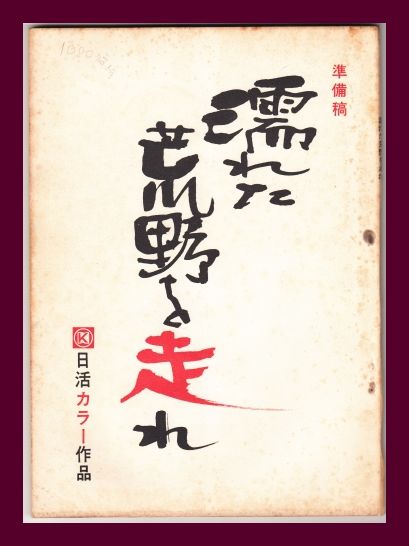 準備稿
濡れた
荒野を走れ
K日活カラー作品